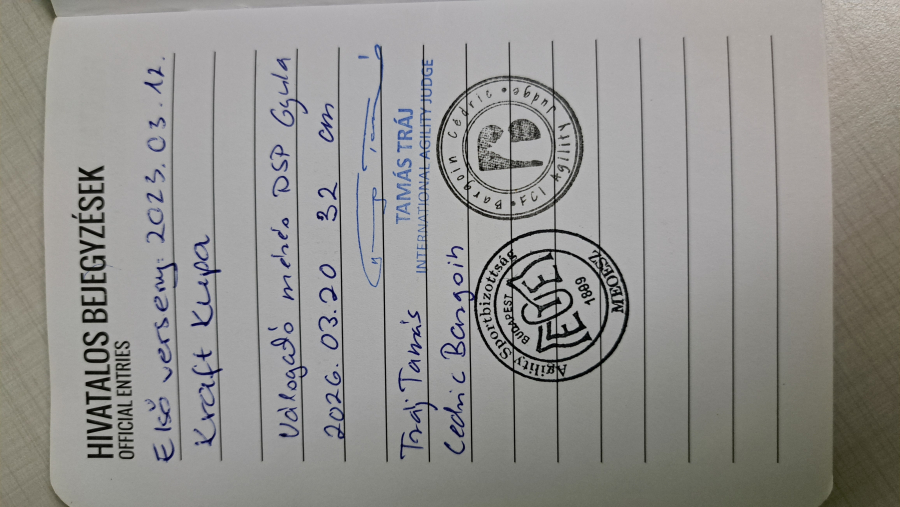 HIVATALOS BEJEGYZÉSEK
OFFICIAL ENTRIES
Első verseny: 2023. 03. 12.
Kraft Kupa
Válogató mérés DSP Gyula
2026. 03. 20 32 cm
TAMÁS TRÁJ
INTERNATIONAL AGILITY JUDGE
Tráj Tamás
Cedric Bargoin
Bargoin Cédric • FCI Agility Judge •
Agility Sportbizottság
BUDAPEST
1899
MEOESZ